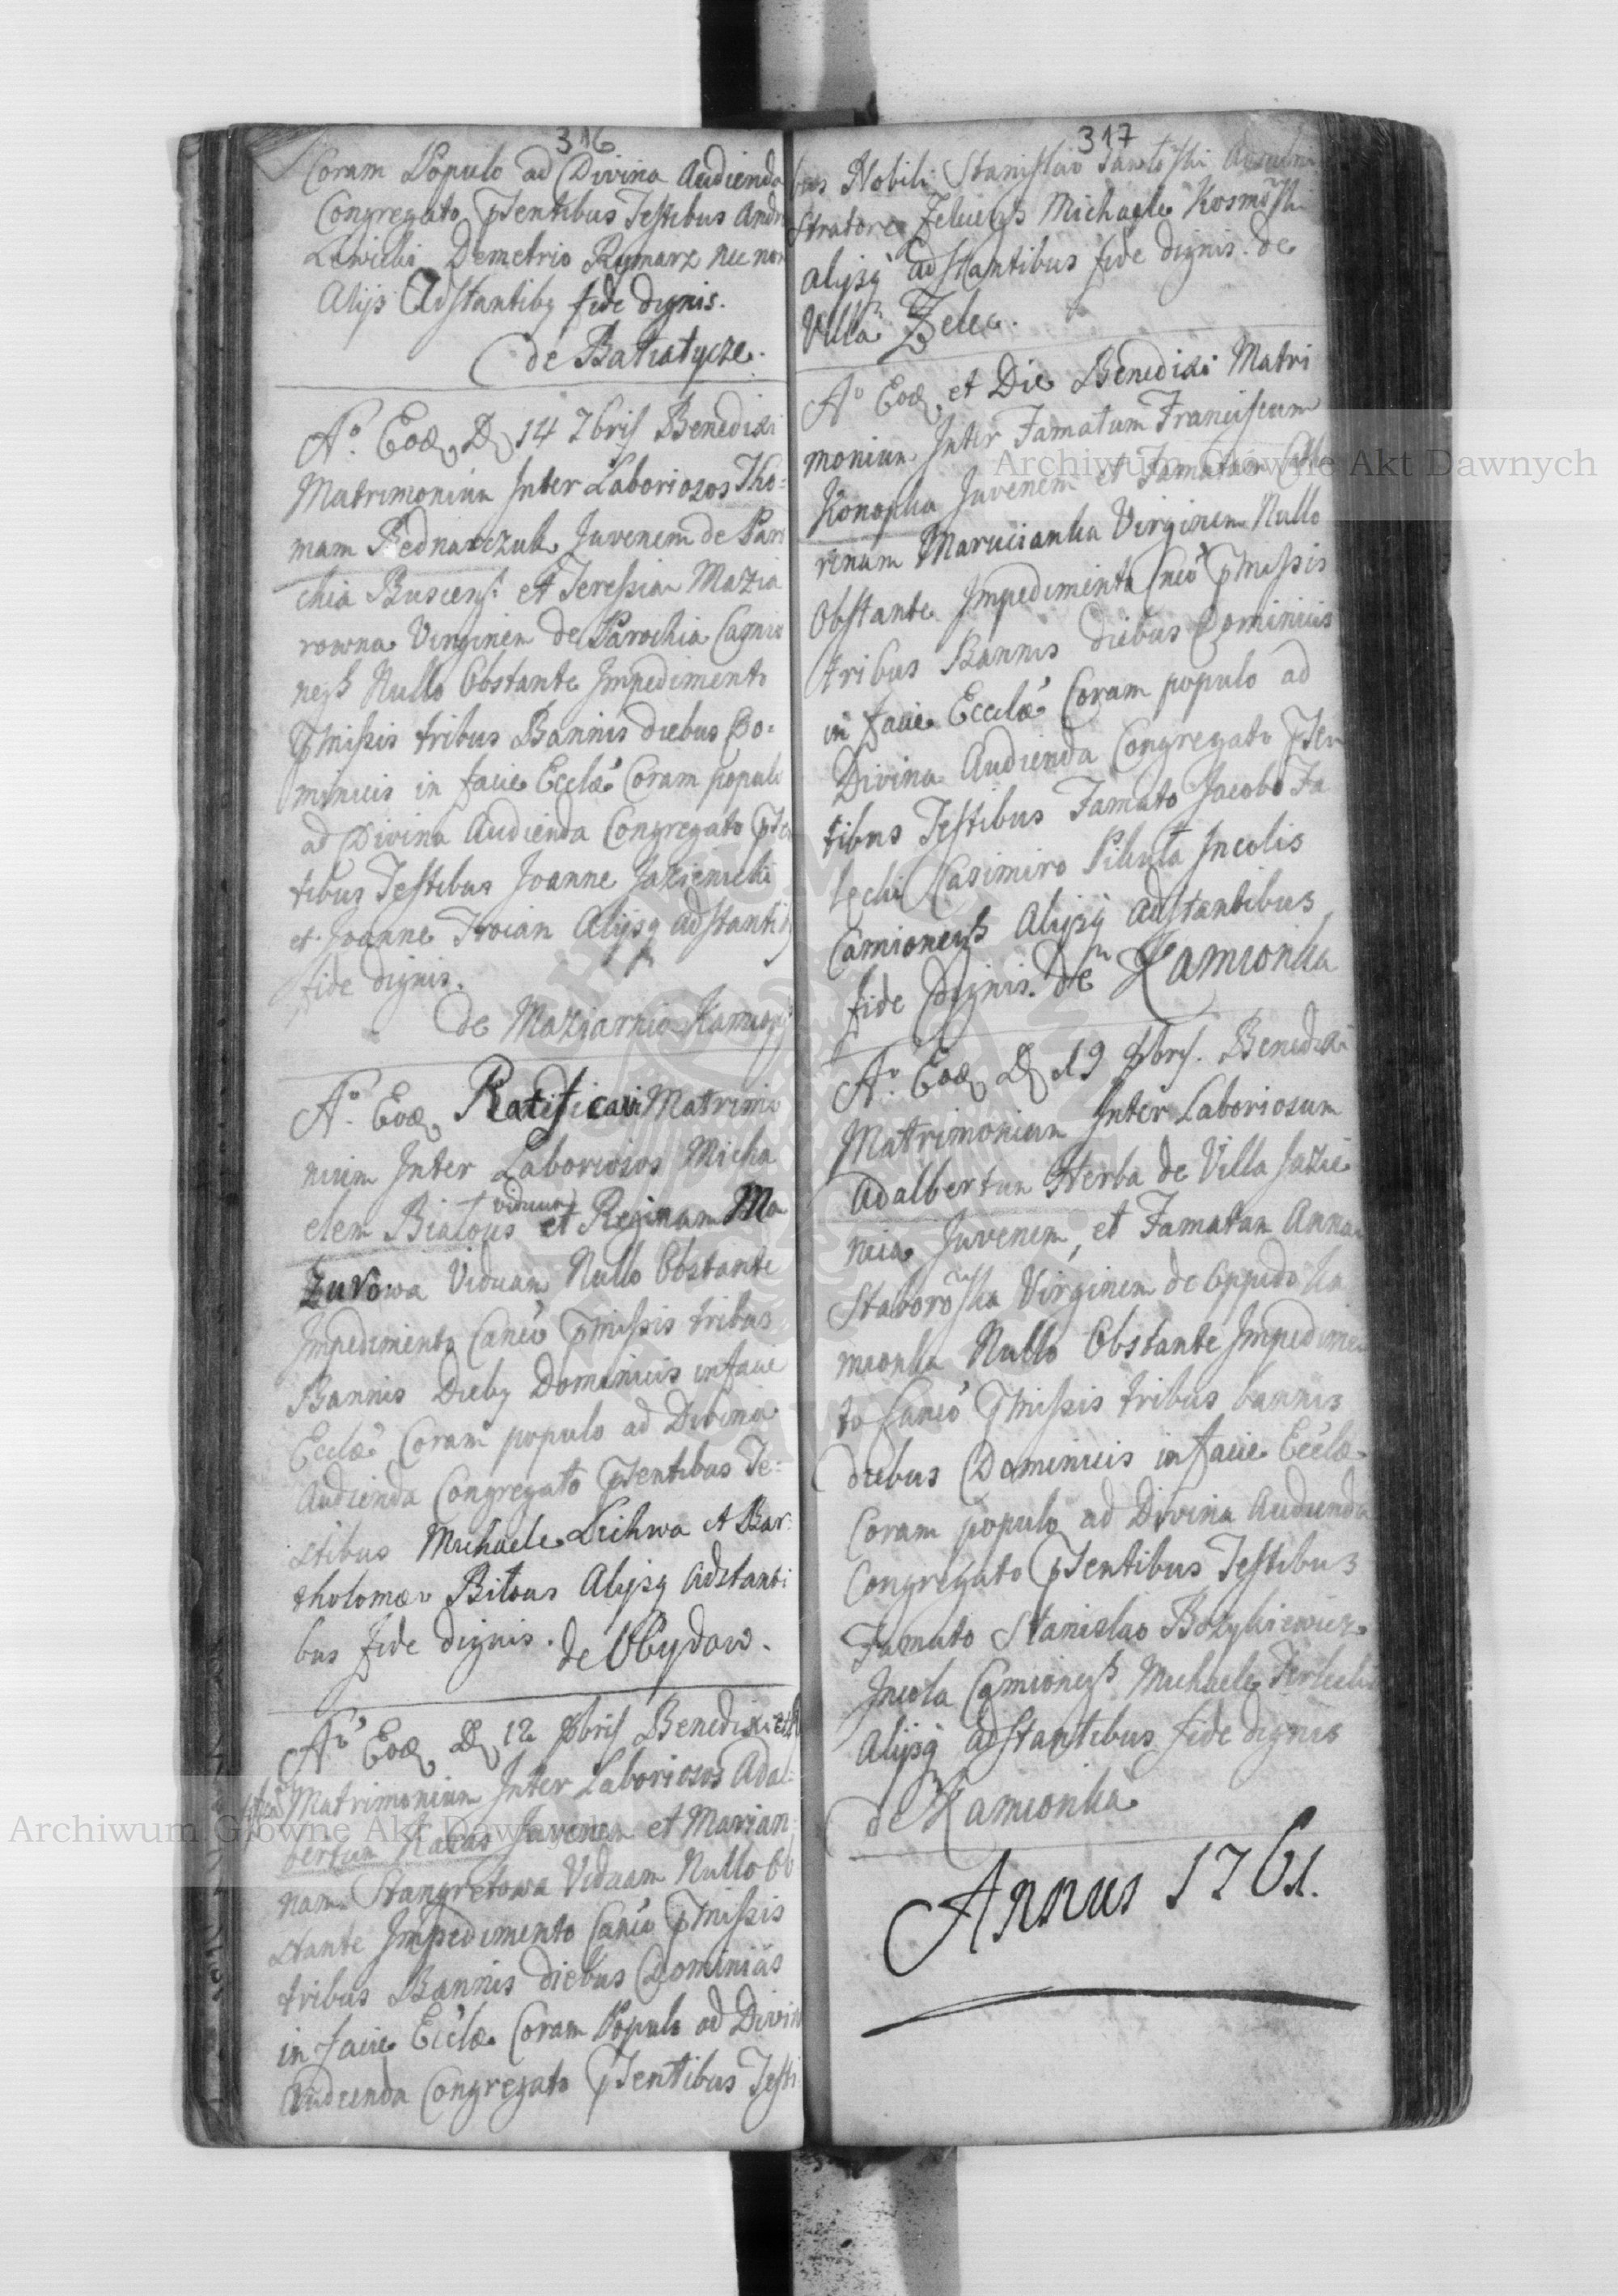 316
Coram Populo ad Divina Audienda
Congregato pntibus Testibus Andr
Lewicki Demetrio Rymarz nec non
Alijs Adstantibq fide dignis.
de Batiatycze.
Ao. Eod. D. 14 7bris Benedixi
Matrimonium Inter Laboriosos Tho=
mam Bednarczuk Juvenem de Paro
chia Buscens: et Teressiam Mazia
rowna Virginem de Parochia Camio
Nullo Obstante Impedimento
pmissis tribus Bannis diebus Do=
minicis in facie Ecclae Coram populo
ad Divina Audienda Congregato
tibus Testibus Joanne Jazienicki
et Joanne Troian Alijsq adstantib
fide dignis.
de Maziarnia Kamion
Ao. Eod. Ratificavi Matrimo
nium Inter Laboriosos Micha
elem Bialous viduum et Reginam Ma
zurowa Viduam Nullo Obstante
Impedimento Canco pmissis tribus
Bannis Diebq Dominicis in facie
Ecclae Coram populo ad Divina
Audienda Congregato pntibus Te=
stibus Michaele Lichwa et Bar=
tholomaeo Bilous Alijsq Adstanti
bus fide dignis. de Obydow.
Ao Eod. D. 12 8bris Benedixi
Matrimonium Inter Laboriosos Adal=
bertum Juvenem et Marian
nam Stangretowa Viduam Nullo Ob
stante Impedimento Canco pmissis
tribus Bannis diebus Dominicis
in facie Ecclae Coram Populo ad Divin
Audienda Congregato pntibus Testi
317
bus Nobili Stanislao Admini
stratore Michaele Kosmoski
alijsq adstantibus fide dignis. de
Villa Zelec.
Ao Eod. et Die Benedixi Matri
monium Inter Famatum Franciscum
Konopka Juvenem et Famatam Cathe
rinam Marucianka Virginem Nullo
Obstante Impedimento Canco pmissis
tribus Bannis diebus Dominicis
in facie Ecclae Coram populo ad
Divina Audienda Congregato
tibus Testibus Famato Jacobo
Casimiro Pikuta Incolis
Alijsq adstantibus
fide dignis. de Kamionka
Ao. Eod. D. 19 9bris. Benedixi
Matrimonium Inter Laboriosum
Adalbertum Herba de Villa Jazie
nica Juvenem, et Famatam Annam
Virginem de Oppido Ka
mionka Nullo Obstante Impedimen
to Canco pmissis tribus bannis
diebus Dominicis in facie Ecclae
Coram populo ad Divina Audienda
Congregato pntibus Testibus
Famato Stanislao Bozykiewicz
Incola Michaele Terlecki
Alijsq adstantibus fide dignis
de Kamionka
Annus 1761.
Archiwum Główne Akt Dawnych
Archiwum Główne Akt Dawnych